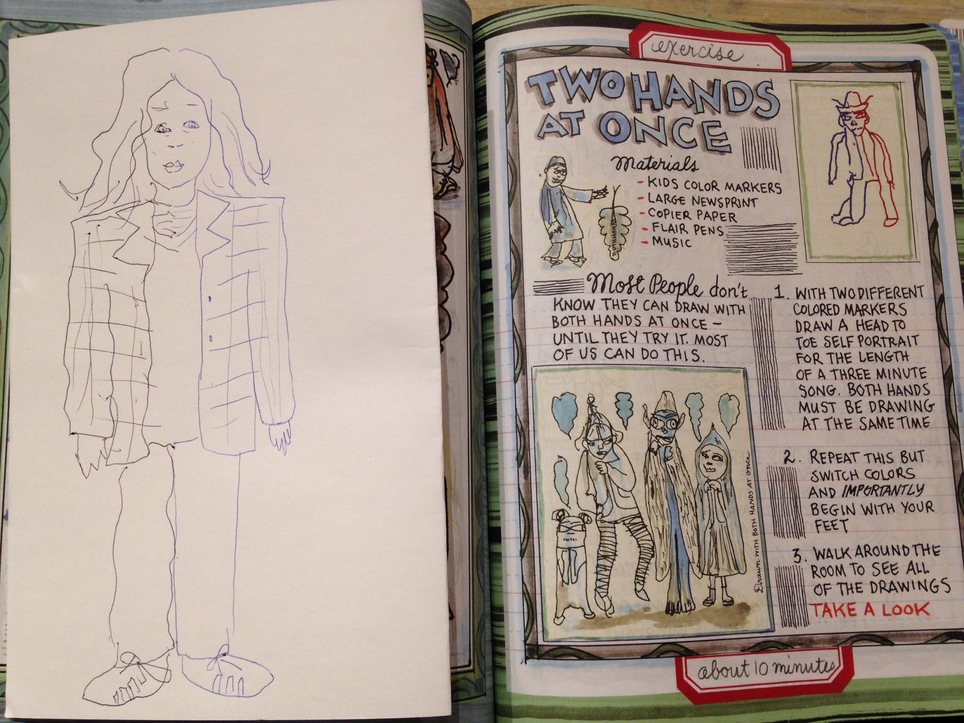 exercise
TWO HANDS
AT ONCE
Materials
- KIDS COLOR MARKERS
- LARGE NEWSPRINT
- COPIER PAPER
- FLAIR PENS
- MUSIC
Most People don't
KNOW THEY CAN DRAW WITH
BOTH HANDS AT ONCE –
UNTIL THEY TRY IT. MOST
OF US CAN DO THIS.
Drawn with both hands at once
1. WITH TWO DIFFERENT
COLORED MARKERS
DRAW A HEAD TO
TOE SELF PORTRAIT
FOR THE LENGTH
OF A THREE MINUTE
SONG. BOTH HANDS
MUST BE DRAWING
AT THE SAME TIME
2. REPEAT THIS BUT
SWITCH COLORS
AND IMPORTANTLY
BEGIN WITH YOUR
FEET
3. WALK AROUND THE
ROOM TO SEE ALL
OF THE DRAWINGS
TAKE A LOOK
about 10 minutes